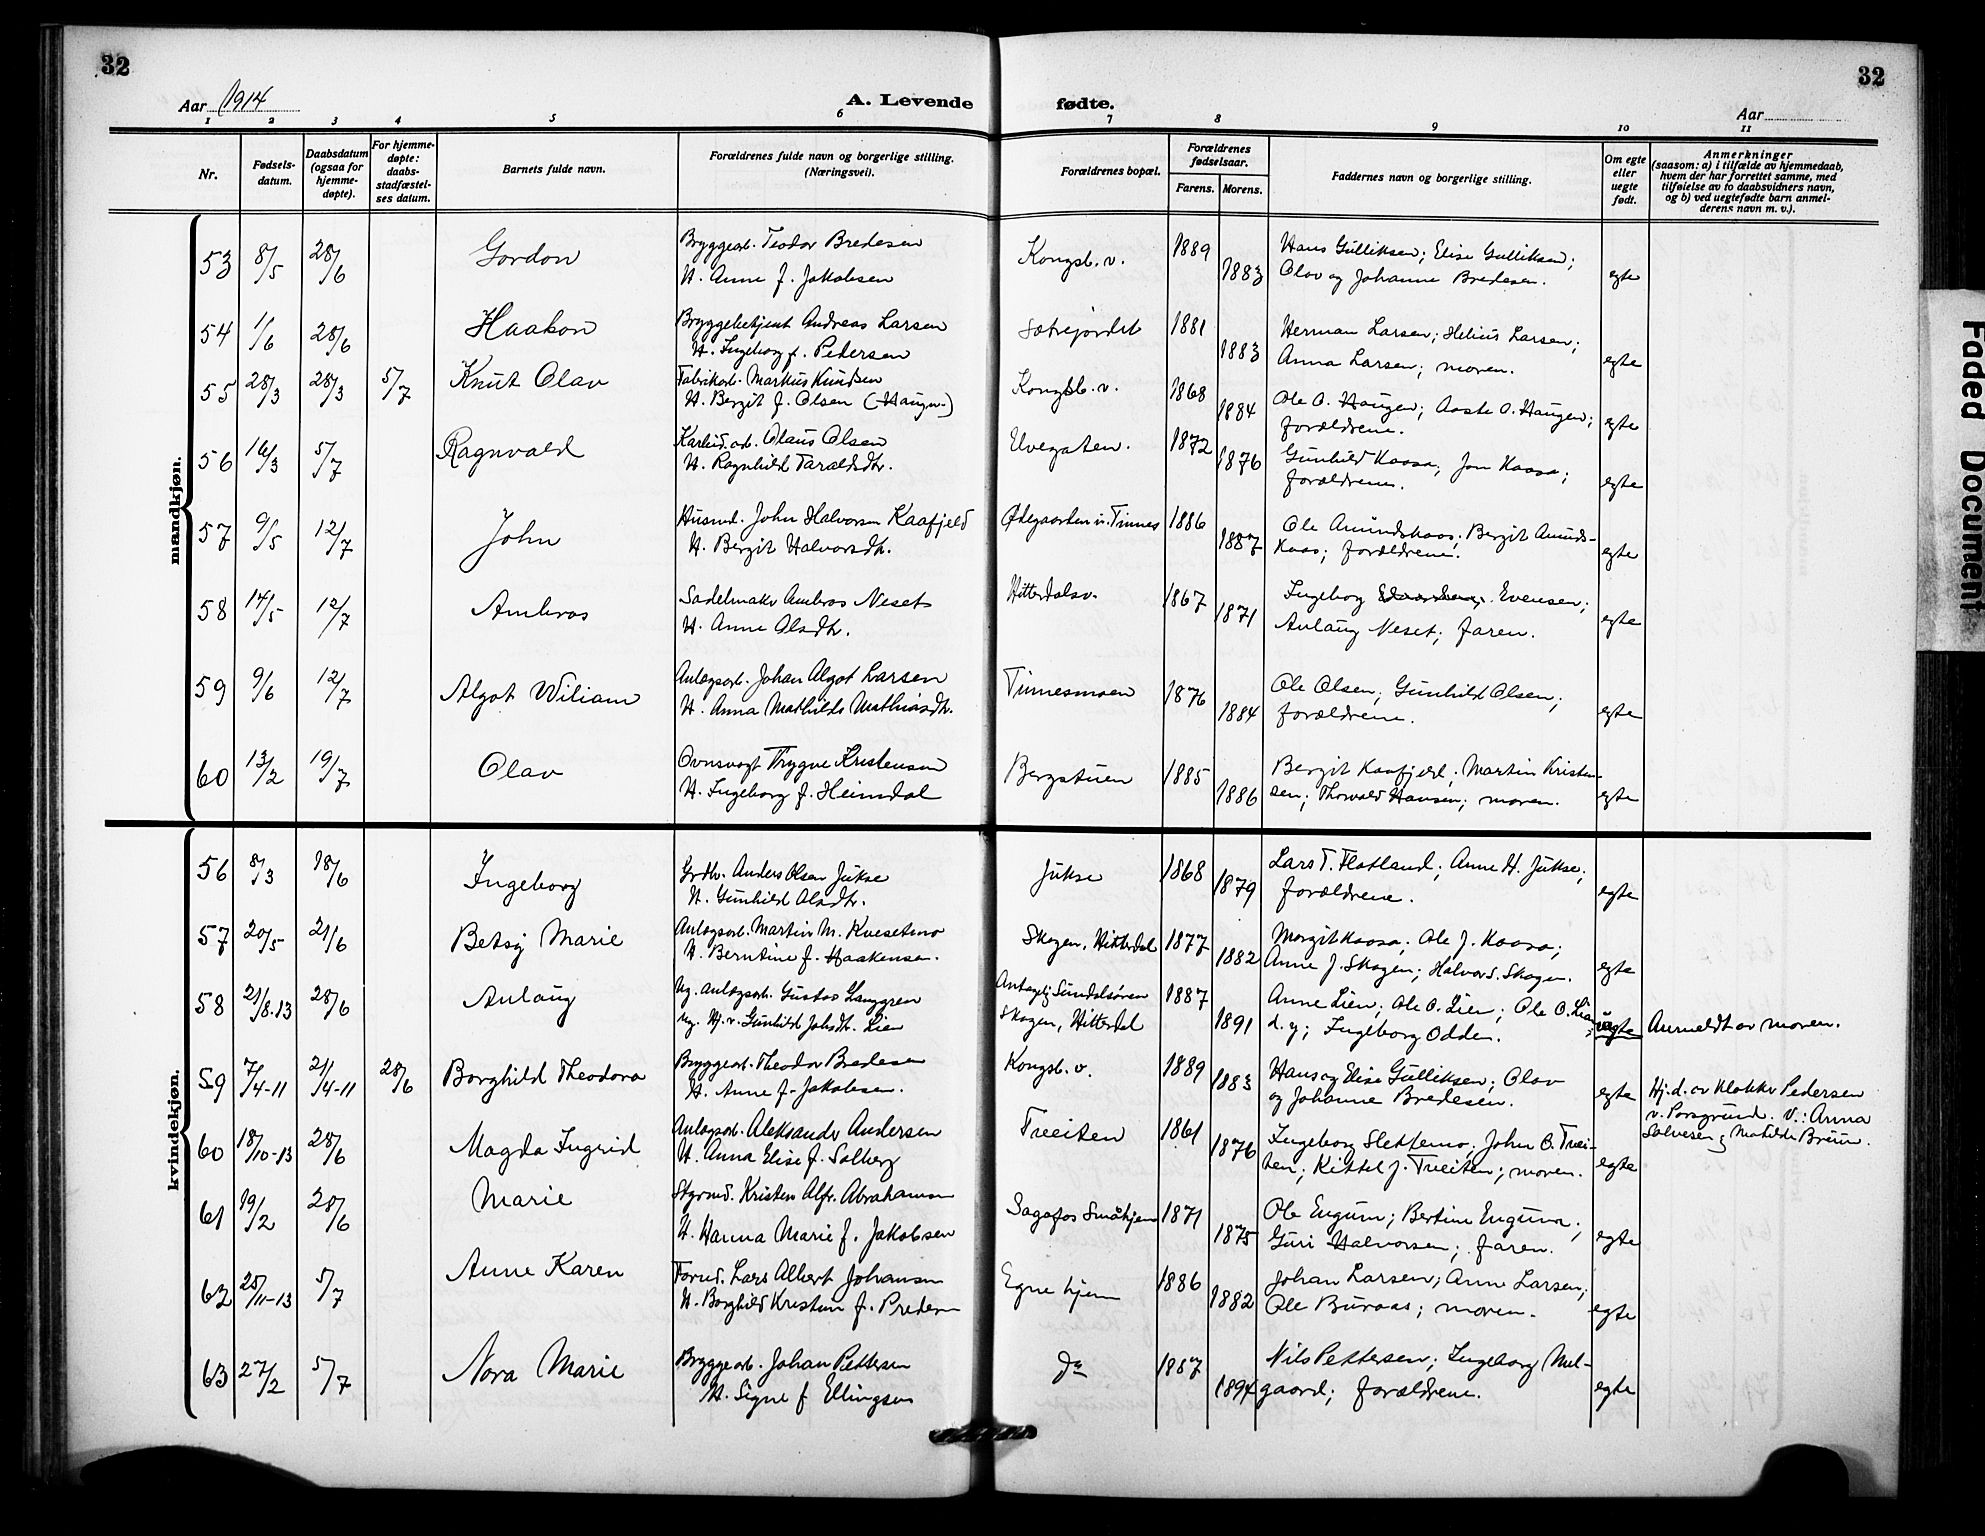 32
32
Aar 1914
A. Levende fødte.
Aar
1 2 3 4 5 6 7 8 9 10 11
Nr.
Fødsels-
datum.
Daabsdatum
(ogsaa for
hjemme-
døpte).
For hjemme-
døpte:
daabs-
stadfæstel-
ses datum.
Barnets fulde navn.
Forældrenes fulde navn og borgerlige stilling.
(Næringsvei).
Forældrenes bopæl.
Forældrenes
fødselsaar.
Farens. Morens.
Faddernes navn og borgerlige stilling.
Om egte
eller
uegte
født.
Anmerkninger
(saasom: a) i tilfælde av hjemmedaab,
hvem der har forrettet samme, med
tilføielse av to daabsvidners navn,
og b) ved uegtefødte barn anmel-
derens navn m. v.).
mandkjøn.
53 8/5 28/6 Gordon Bryggearb. Teodor Bredesen Kongsb. v. 1889 Hans Gulliksen; Elise Gulliksen;
H. Anne f. Jakobsen 1883 Olav og Johanne Bredesen. egte
54 1/6 28/6 Haakon Bryggebetjent Andreas Larsen Sætrejordet 1881 Herman Larsen; Helius Larsen;
H. Ingeborg f. Pedersen 1883 Anna Larsen; moren. egte
55 28/3 28/3 5/7 Knut Olav Fabrikarb. Markus Knudsen Kongsb. v. 1868 Ole O. Haugen; Aaste O. Haugen;
H. Bergit f. Olsen (Haugen) 1884 forældrene. egte
56 16/3 5/7 Ragnvald Karbid.arb. Olaus Olsen Elvegaten. 1872 Gunhild Kaasa; Jon Kaasa;
H. Ragnhild Taraldsdtr. 1876 forældrene. egte
57 9/5 12/7 John Husmd. John Halvorsen Kaafjeld Ødegaarden u. Tinnes 1886 Ole Amundskaas; Bergit Amunds-
H. Bergit Halvorsdtr. 1887 kaas; forældrene. egte
58 14/5 12/7 Ambros Sadelmaker Ambros Neset Hitterdalsv. 1867 Ingeborg Evensen;
H. Anne Olsdtr. 1871 Anlaug Neset; faren. egte
59 9/6 12/7 Algot Wiliam Anlægsarb. Johan Algot Larsen Tinnesmoen 1876 Ole Olsen; Gunhild Olsen;
H. Anna Mathilde Mathiasdtr. 1884 forældrene. egte
60 13/2 19/7 Olav Ovnsvogt Trygve Kristensen Bergstuen 1885 Bergit Kaafjeld; Martin Kristen-
H. Ingeborg f. Heimdal 1886 sen; Thorvald Hansen; moren. egte
kvindekjøn.
56 8/3 18/6 Ingeborg Grdbr. Anders Olsen Jukse Jukse 1868 Lars T. Flatland; Anne H. Jukse;
H. Gunhild Olsdtr. 1879 forældrene. egte
57 20/5 21/6 Betsy Marie Anlægsarb. Martin M. Kvesetmo Skogen, Hitterdal 1877 Margit Kaasa; Ole J. Kaasa;
H. Berntine f. Haakensen. 1882 Anne J. Skogen; Halvor S. Skogen. egte
58 21/8.13 28/6 Anlaug Ug. anlægsarb. Gustav Langgren Antagelig Sundalsøren 1887 Anne Lien; Ole O. Lien; Ole O. Lien
ug. Hj. v. Gunhild Johsdtr. Lien Skogen, Hitterdal 1891 d. y.; Ingeborg Odden. uegte Anmeldt av moren.
59 7/4-11 21/4-11 28/6 Borghild Theodora Bryggearb. Theodor Bredesen Kongsb. v. 1889 Hans og Elise Gulliksen; Olav
H. Anne f. Jakobsen. 1883 og Johanne Bredesen. egte Hj. d. av Klokker Pedersen
v. Porsgrund. V.: Anna
Salvesen og Matilde Bruun.
60 18/10-13 28/6 Magda Ingrid Anlægsarb. Aleksander Andersen Treeiten 1861 Ingeborg Slettemo; John O. Treei-
H. Anna Elise f. Solberg 1876 ten; Kittel J. Treeiten; moren. egte
61 19/2 28/6 Marie Styrmd. Kristen Alfr. Abrahamsen Sagafos Småhjem 1871 Ole Engum; Bertine Engum;
H. Hanna Marie f. Jakobsen 1875 Guri Halvorsen; faren. egte
62 25/11-13 5/7 Anne Karen Formd. Lars Albert Johansen Egne hjem 1886 Johan Larsen; Anne Larsen;
H. Borghild Kristine f. Pedersen 1882 Ole Buraas; moren. egte
63 27/2 5/7 Nora Marie Bryggearb. Johan Pettersen do 1887 Nils Pettersen; Ingeborg Mel-
H. Signe f Ellingsen 1894 gaard; forældrene. egte
Faded Document